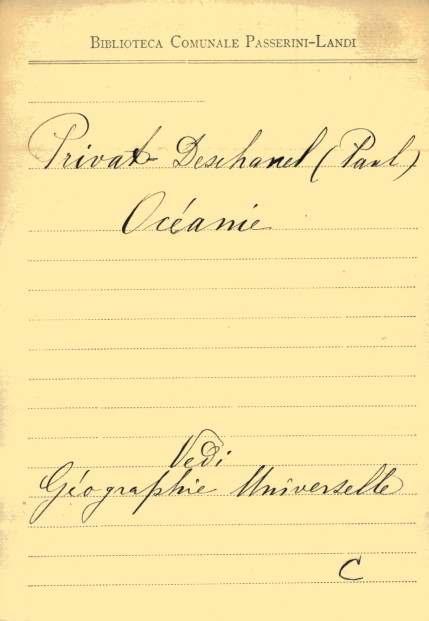 BIBLIOTECA COMUNALE PASSERINI-LANDI
Privat-Deschanel (Paul)
Océanie
Vedi
Géographie Universelle
C